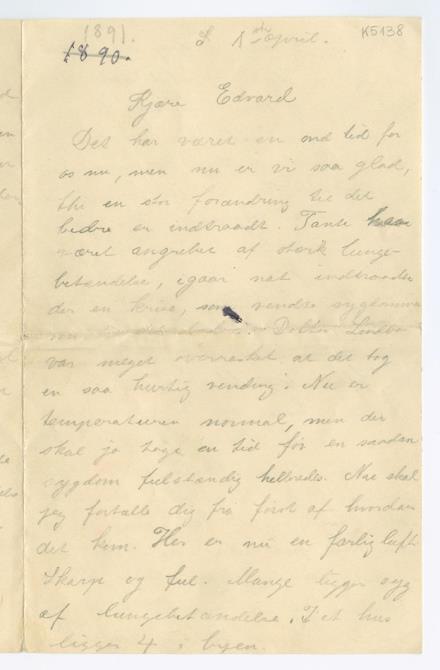 1891.
1890.
d. 1ste April.
K5138
Kjære Edvard
Det har været en ond tid for
os nu, men nu er vi saa glad,
thi en stor forandring til det
bedre er indtraadt. Tante har
været angrebet af stærk lunge-
betændelse, igaar nat indtraadte
der en krise, som vendte sygdommen
Doktor
var meget overrasket at det tog
en saa hurtig vending. Nu er
temperaturen normal, men der
skal jo tage en tid før en saadan
sygdom fulstændig helbredes. Nu skal
jeg fortælle dig fra først af hvordan
det kom. Her er nu en færlig luft
skarp og ful. Mange ligger syg
af lungebetændelse. I et hus
ligger 4 i byen.